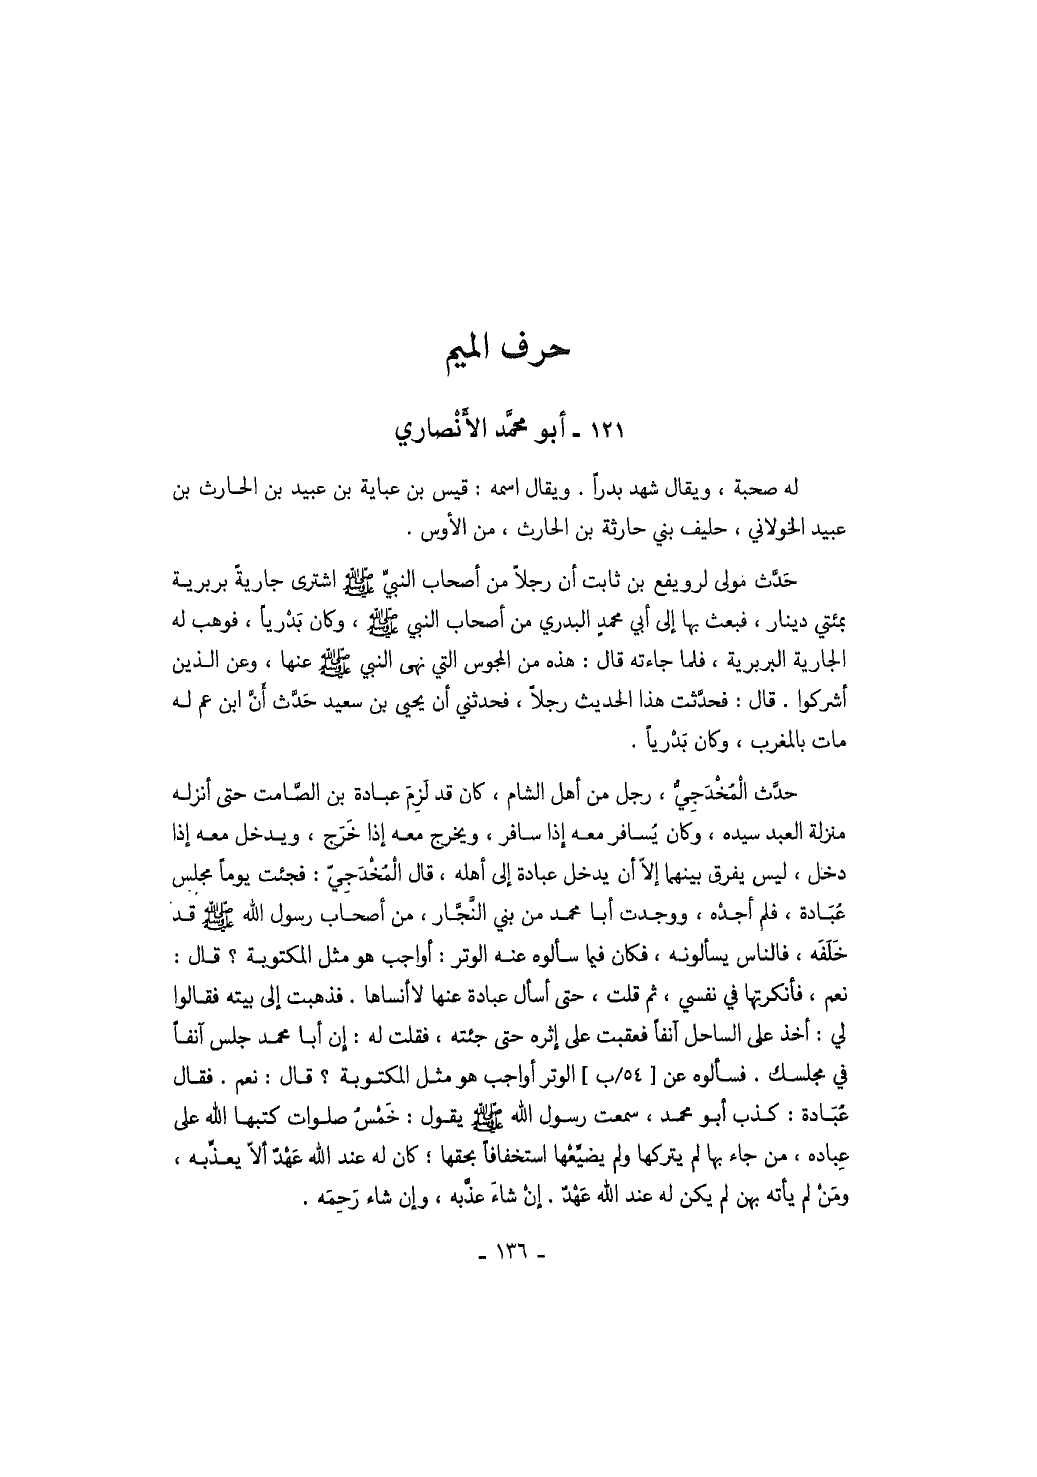 حرف الميم
١٢١ ـ أبو محمَّد الأَنْصاري
له صحبة ، ويقال شهد بدراً . ويقال اسمه : قيس بن عباية بن عبيد بن الحارث بن
عبيد الخولاني ، حليف بني حارثة بن الحارث ، من الأوس .
حَدَّث مولى لرويفع بن ثابت أن رجلاً من أصحاب النبيّ ﷺ اشترى جاريةً بربرية
بمئتي دينار ، فبعث بها إلى أبي محمدٍ البدري من أصحاب النبي ﷺ ، وكان بَدْرياً ، فوهب له
الجارية البربرية ، فلما جاءته قال : هذه من المجوس التي نهى النبي ﷺ عنها ، وعن الذين
أشركوا . قال : فحدَّثت هذا الحديث رجلاً ، فحدثني أن يحيى بن سعيد حَدَّث أَنَّ ابن عم له
مات بالمغرب ، وكان بَدْرياً .
حدَّث الْمُخْدَجِيُّ ، رجل من أهل الشام ، كان قد لَزِمَ عبادة بن الصَّامت حتى أنزله
منزلة العبد سيده ، وكان يُسافر معه إذا سافر ، ويخرج معه إذا خَرَج ، ويدخل معه إذا
دخل ، ليس يفرق بينهما إلاّ أن يدخل عبادة إلى أهله ، قال الْمُخْدَجِيّ : فجئت يوماً مجلس
عُبَادة ، فلم أجدْه ، ووجدت أبا محمد من بني النَّجَّار ، من أصحاب رسول الله ﷺ قد
خَلَفَه ، فالناس يسألونه ، فكان فيما سألوه عنه الوتر : أواجب هو مثل المكتوبة ؟ قال :
نعم ، فأنكرتها في نفسي ، ثم قلت ، حتى أسأل عبادة عنها لاأنساها . فذهبت إلى بيته فقالوا
لي : أخذ على الساحل آنفاً فعقبت على إثره حتى جئته ، فقلت له : إن أبا محمد جلس آنفاً
في مجلسك . فسألوه عن [ ٥٤/ب ] الوتر أواجب هو مثل المكتوبة ؟ قال : نعم . فقال
عُبَادة : كذب أبو محمد ، سمعت رسول الله ﷺ يقول : خَمْسُ صلوات كتبها الله على
عِباده ، من جاء بها لم يتركها ولم يضيِّعْها استخفافاً بحقها ؛ كان له عند الله عَهْدٌ ألاّ يعذِّبه ،
ومَنْ لم يأته بهن لم يكن له عند الله عَهْدٌ . إنْ شاءَ عذَّبه ، وإن شاء رَحِمَه .
ـ ١٣٦ ـ